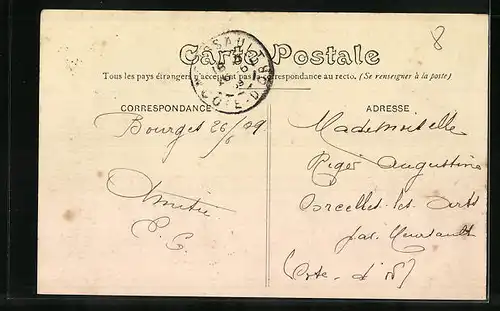 8
Carte Postale
Tous les pays étrangers n'acceptent pas la correspondance au recto. (Se renseigner à la poste)
CORRESPONDANCE
ADRESSE
Bourges 26/6 09
Amitié
Mademoiselle
Riger Augustine
Corcelles-les-Arts
par Meursault
Côte-d'Or
CÔTE-D'OR